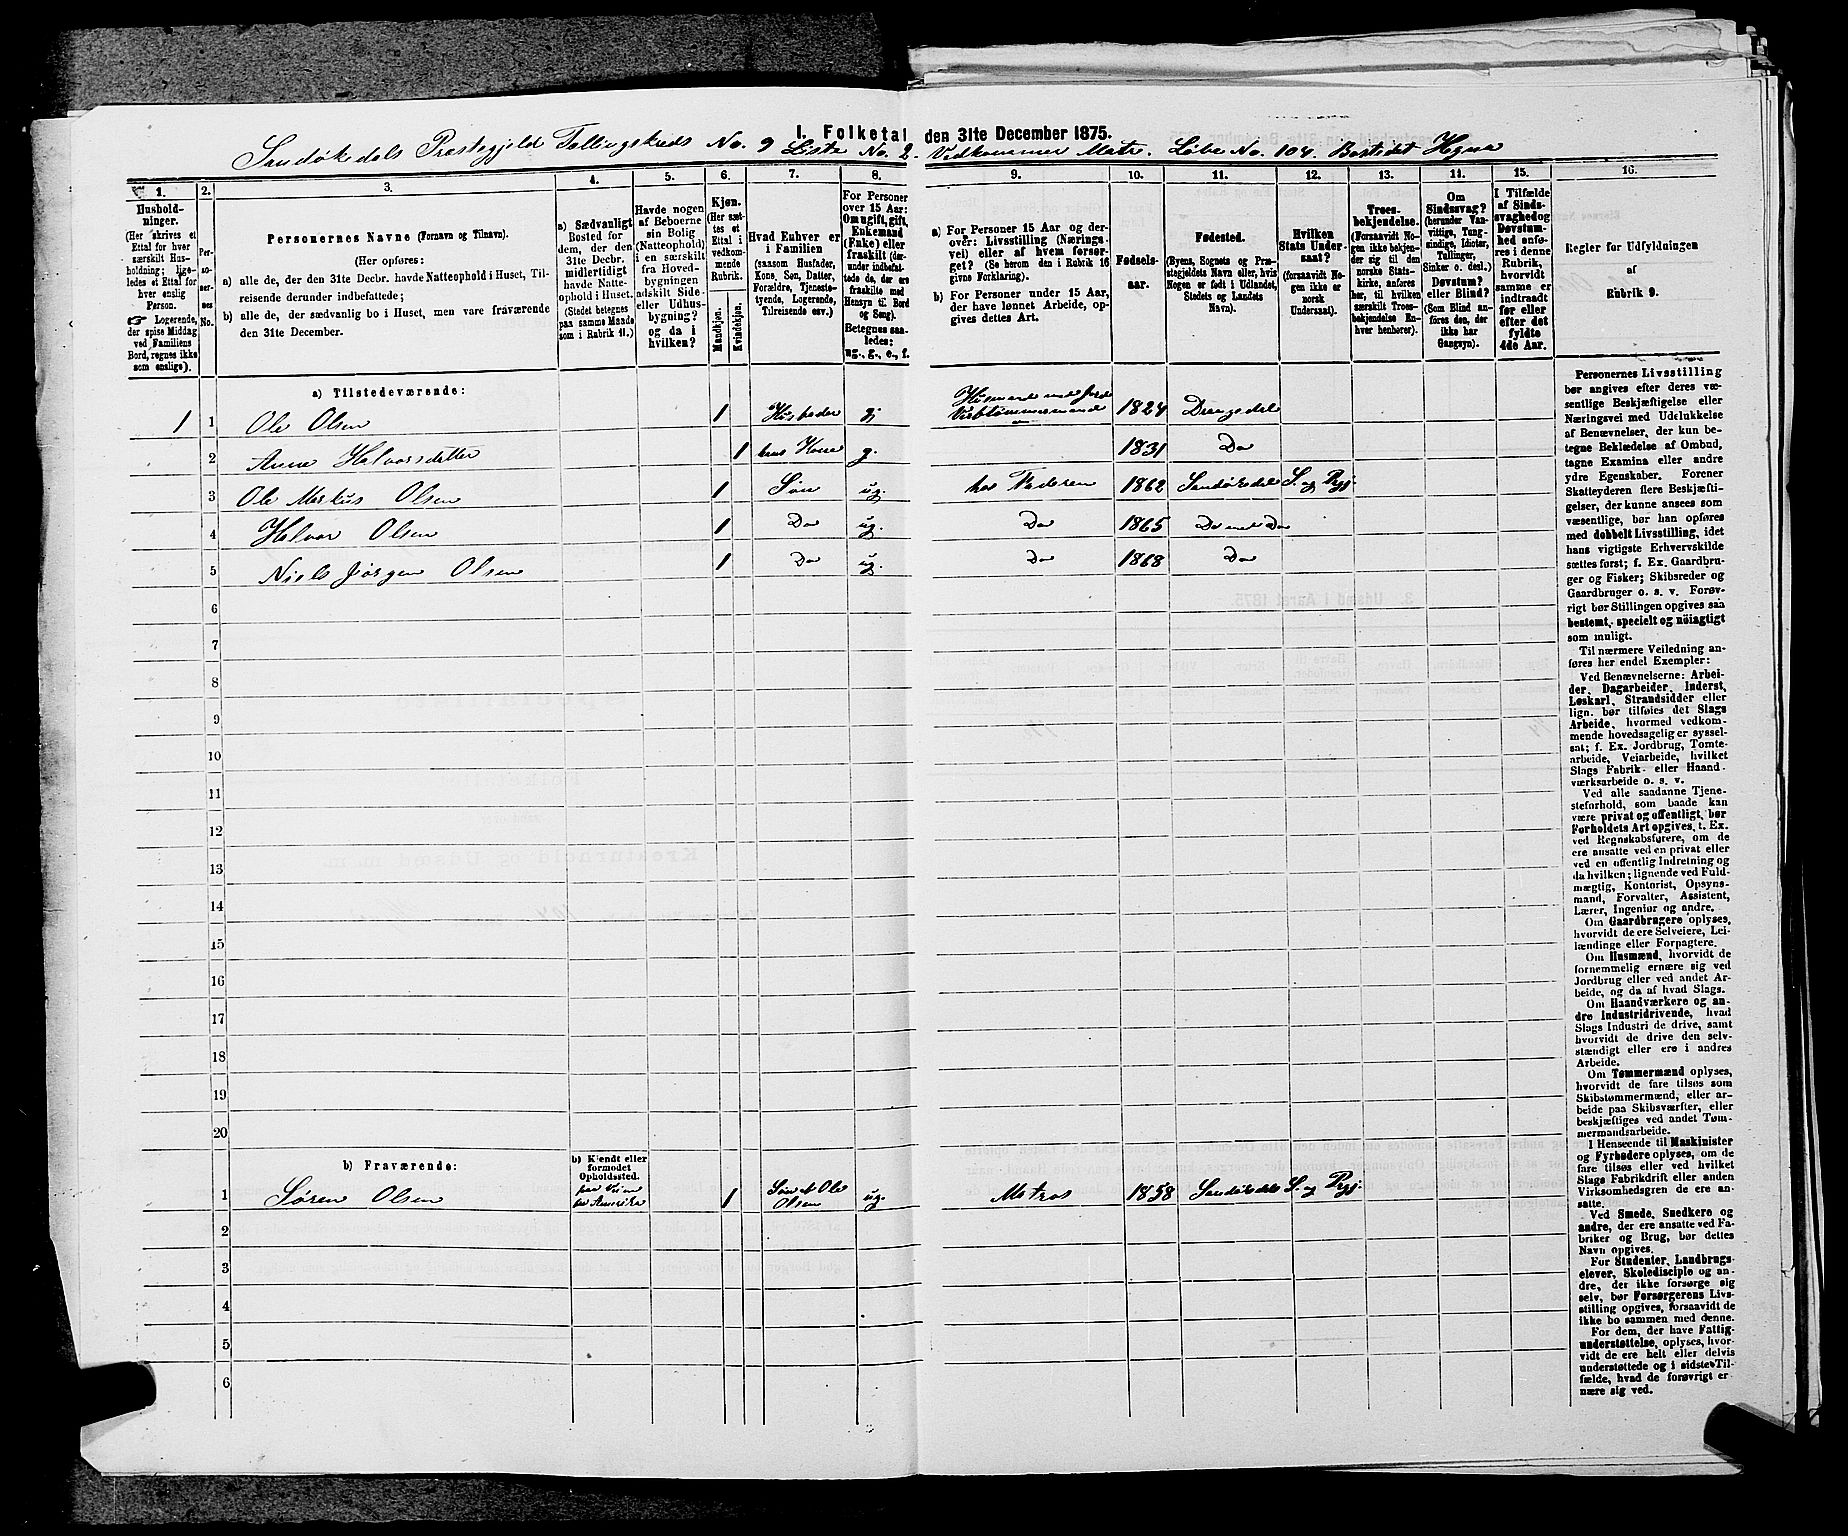 I. Folketal den 31te December 1875.
Sandøkedals Præstegjeld Tællingskreds No. 9 Liste No. 2. Vedkommer Matr. Løbe No. 104. Bostedet Hegna
1. 2. 3. 4. 5. 6. 7. 8. 9. 10. 11. 12. 13. 14. 15. 16.
Husholdninger.
(Her skrives et
Ettal for hver
særskilt Husholdning; ligeledes et Ettal for
hver enslig
Person.
☞ Logerende,
der spise Middag
ved Familiens
Bord, regnes ikke
som enslige).
Personernes No.
Personernes Navne (Fornavn og Tilnavn).
(Her opføres:
a) alle de, der den 31te Decbr. havde Natteophold i Huset, Tilreisende derunder indbefattede;
b) alle de, der sædvanlig bo i Huset, men vare fraværende
den 31te December.
a) Sædvanligt
Bosted for
dem, der den
31te Decbr.
midlertidigt
havde Natteophold i Huset.
(Stedet betegnes
paa samme Maade
som i Rubrik 11.)
Havde nogen
af Beboerne
sin Bolig
(Natteophold)
i en særskilt
fra Hovedbygningen
adskilt Side-
eller Udhusbygning?
og da i
hvilken?
Kjøn.
(Her sættes et
Ettal i
vedkommende
Rubrik.
Mandkjøn.
Kvindekjøn.
Hvad Enhver er
i Familien
(saasom Husfader,
Kone, Søn, Datter,
Forældre, Tjenestetyende, Logerende,
Tilreisende osv.)
For Personer
over 15 Aar:
Om ugift, gift,
Enkemand
(Enke) eller
fraskilt (derunder indbefattede de, der ere
fraskilte med
Hensyn til Bord
og Seng).
Betegnes saaledes:
ug., g., e., f.
a) For Personer 15 Aar og derover: Livsstilling (Næringsvei) eller af hvem forsørget? (Se herom den i Rubrik 16
givne Forklaring).
b) For Personer under 15 Aar,
der have lønnet Arbeide, opgives dettes Art.
Fødselsaar.
Fødested.
(Byens, Sognets og Præstegjeldets Navn eller, hvis
Nogen er født i Udlandet,
Stedets og Landets
Navn).
Hvilken
Stats Undersaat?
(forsaavidt Nogen ikke er
norsk
Undersaat).
Troesbekjendelse.
(Forsaavidt Nogen ikke bekjender sig til den
norske Statskirke, anføres
her, til hvilken
særskilt Troesbekjendelse Enhver henhører).
Om
Sindssvag?
(herunder Vanvittige, Tungsindige, Idioter,
Tullinger,
Sinker o. desl.)
Døvstum?
eller Blind?
(Som Blind anføres den, der
ikke har
Gangsyn).
I Tilfælde
af Sindssvaghed og
Døvstumhed anføres i denne
Rubrik,
hvorvidt
samme er
indtraadt
før eller
efter det
fyldte
4de Aar.
Regler for Udfyldningen
af
Rubrik 9.
a) Tilstedeværende:
1 1 Ole Olsen 1 Husfader g. Husmand med Jord Skibstømmermand 1824 Drangedal
2 Anne Halvorsdatter 1 hans Kone g. 1831 Do
3 Ole Markus Olsen 1 Søn ug. hos Faderen 1862 Sandøkedal S. og Prgj.
4 Halvor Olsen 1 Do ug. Do 1865 Do
5 Niels Jørgen Olsen 1 Do ug. Do 1868 Do
6
7
8
9
10
11
12
13
14
15
16
17
18
19
20
b) Fraværende:
b) Kjendt eller
formodet
Opholdssted.
1 Søren Olsen Amerika 1 Søn af Ole Olsen ug. Matros 1858 Sandøkedals S. og Prgj.
2
3
4
5
6
Personernes Livsstilling
bør angives efter deres væsentlige Beskjæftigelse eller
Næringsvei med Udelukkelse
af Benævnelser, der kun betegne Beklædelse af Ombud,
tagne Examina eller andre
ydre Egenskaber. Forener
Skatteyderen flere Beskjæftigelser, der kunne ansees som
væsentlige, bør han opføres
med dobbelt Livsstilling, idet
hans vigtigste Erhvervskilde
sættes først; f. Ex. Gaardbruger og Fisker; Skibsreder og
Gaardbruger o. s. v. Forøvrigt bør Stillingen opgives saa
bestemt, specielt og nøiagtigt
som muligt.
Til nærmere Veiledning anføres her endel Exempler:
Ved Benævnelserne: Arbeider, Dagarbeider, Inderst,
Løskarl, Strandsidder eller
lign. bør tilføies det Slags
Arbeide, hvormed vedkommende hovedsagelig er sysselsat; f. Ex. Jordbrug, Tomtearbeide, Veiarbeide, hvilket
Slags Fabrik- eller Haandværksarbeide o. s. v.
Ved alle saadanne Tjenesteforhold, som baade kan
være privat og offentligt, bør
Forholdets Art opgives, t. Ex.
ved Regnskabsførere, om de
ere ansatte ved en privat eller
ved en offentlig Indretning og
da hvilken; lignende ved Fuldmægtig, Kontorist, Opsynsmand, Forvalter, Assistent,
Lærer, Ingeniør og andre.
Om Gaardbrugere oplyses,
hvorvidt de ere Selveiere, Leilændinge eller Forpagtere.
Om Husmænd, hvorvidt de
fornemmelig ernære sig ved
Jordbrug eller ved andet Arbeide, og da af hvad Slags.
Om Haandværkere og andre Industridrivende, hvad
Slags Industri de drive, samt
hvorvidt de drive den selvstændigt eller ere i andres
Arbeide.
Om Tømmermænd oplyses,
hvorvidt de fare tilsøs som
Skibstømmermænd, eller arbeide paa Skibsværfter, eller
beskjæftiges ved andet Tømmermandsarbeide.
I Henseende til Maskinister
og Fyrbødere oplyses, om de
fare tilsøs eller ved hvilket
Slags Fabrikdrift eller anden
Virksomhedsgren de ere ansatte.
Ved Smede, Snedkere og
andre, der ere ansatte ved Fabriker og Brug, bør dettes
Navn opgives.
For Studenter, Landbrugselever, Skoledisciple og andre, der ikke forsørge sig
selv, bør Forsørgerens Livsstilling opgives, forsaavidt de
ikke bo sammen med denne.
For dem, der have Fattigunderstøttelse, oplyses, hvorvidt de ere helt eller delvis
understøttede og i sidste Tilfælde, hvad de forøvrigt ernære sig ved.